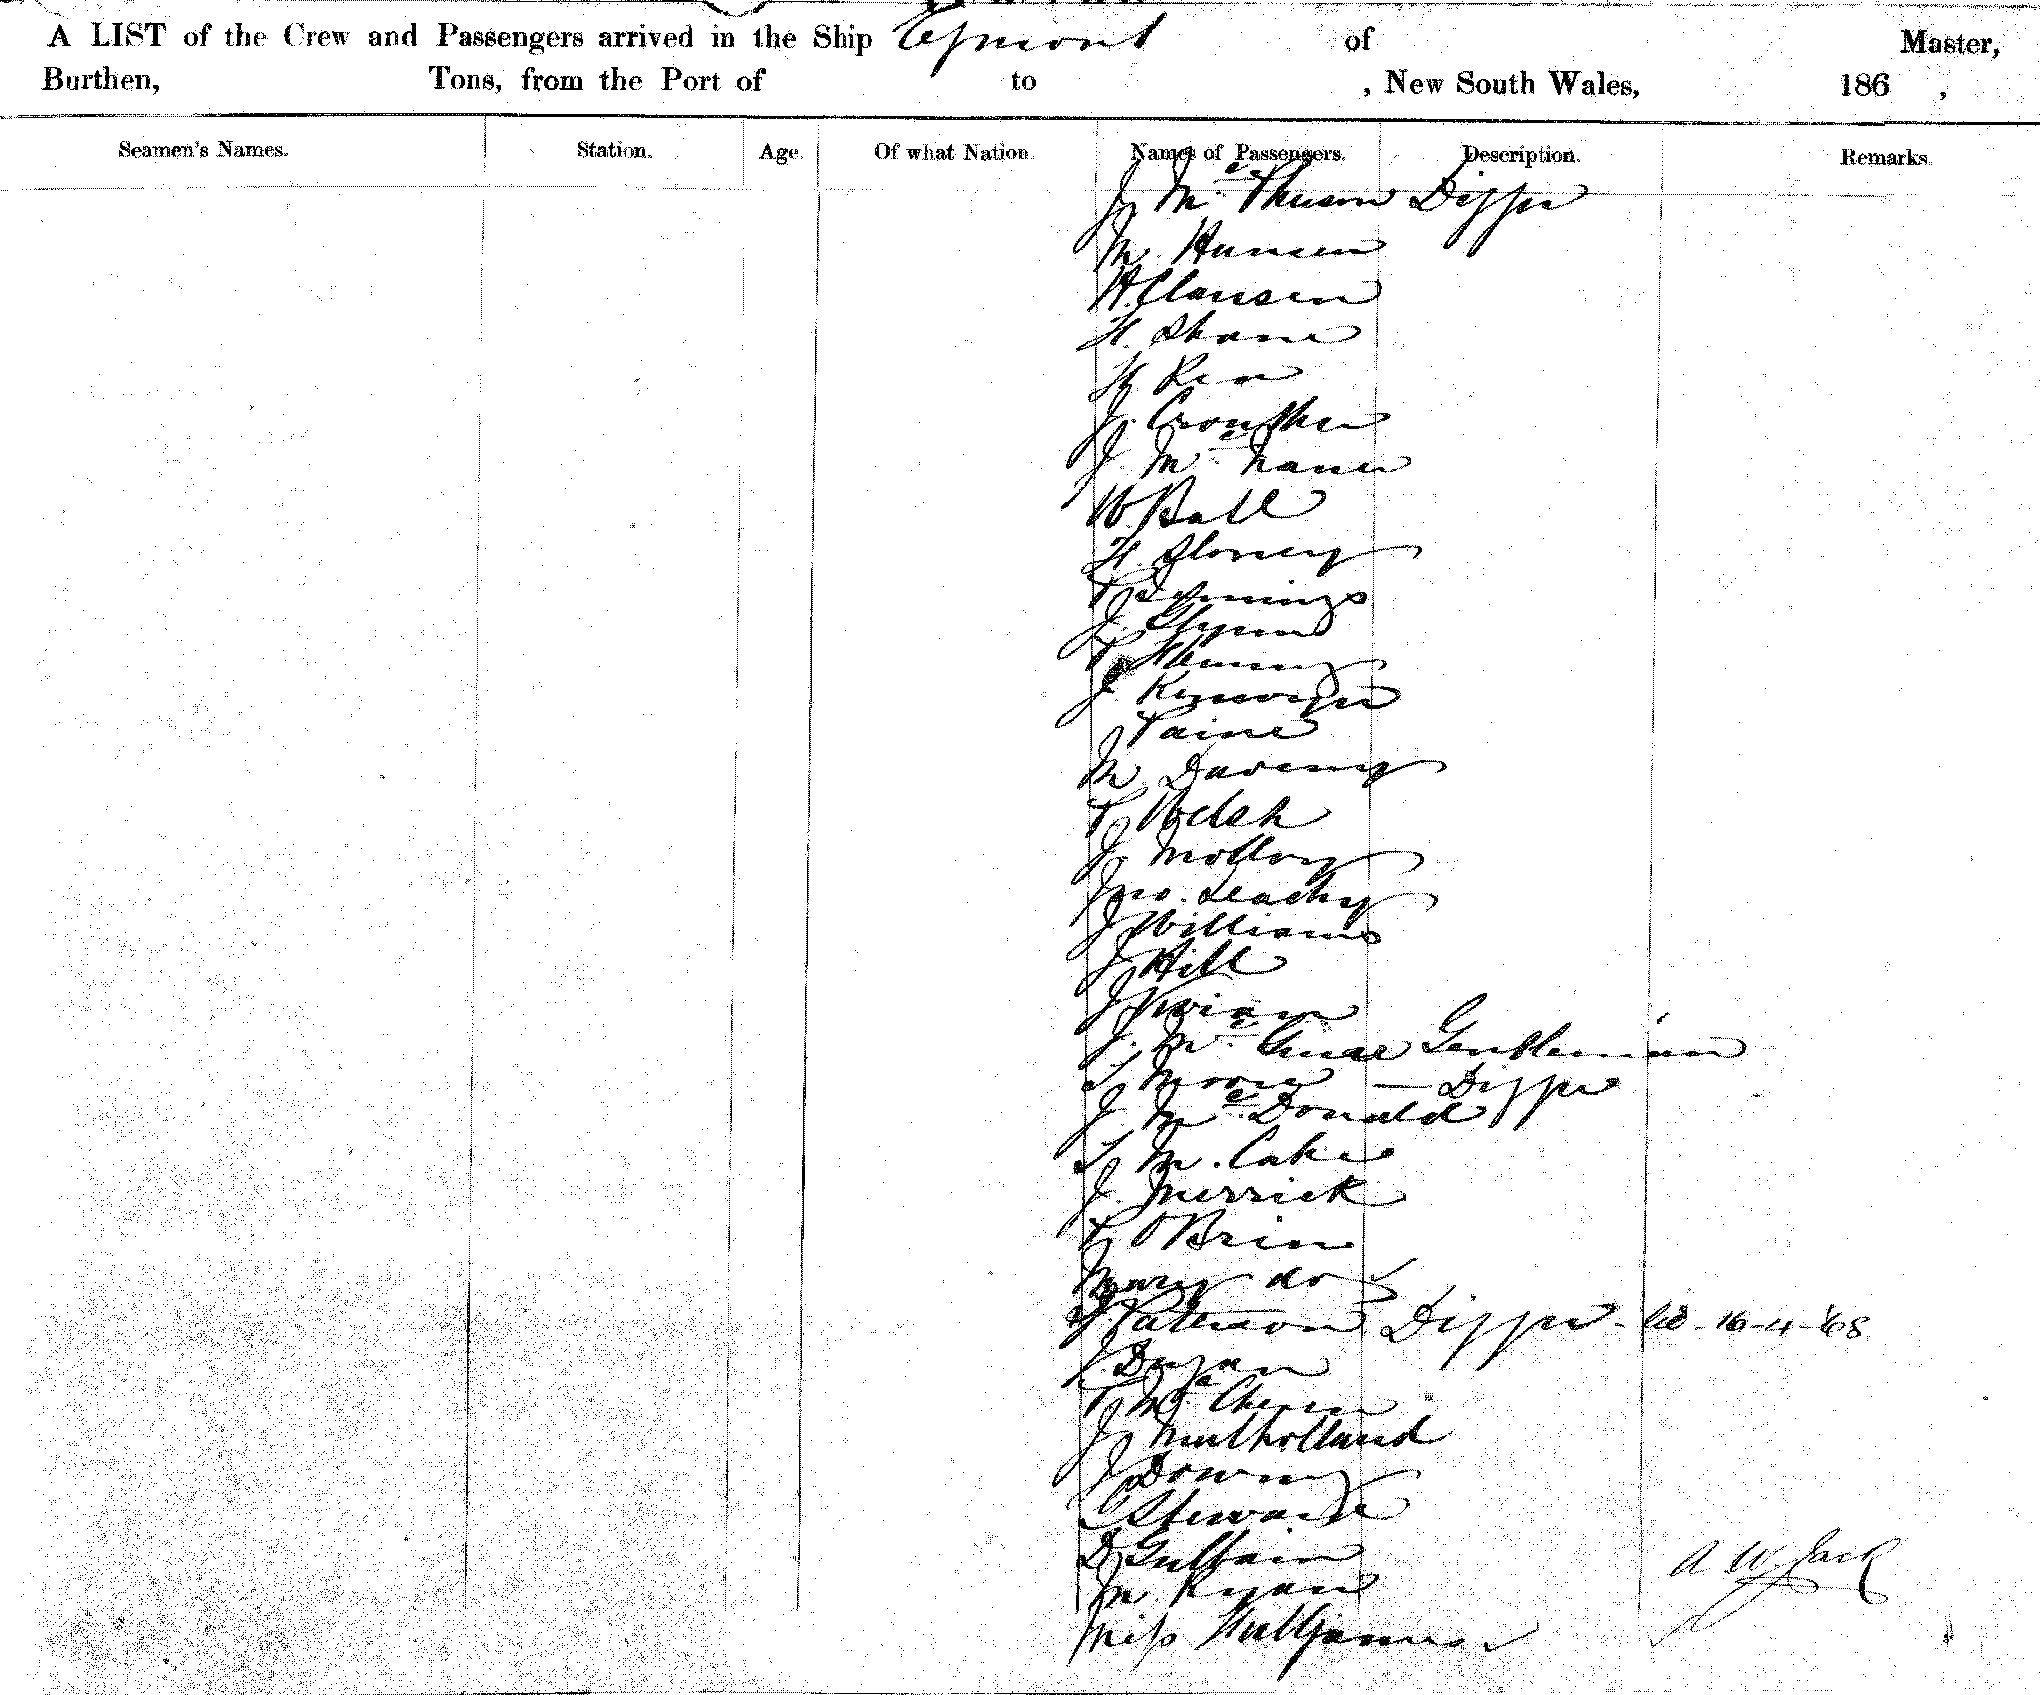 A LIST of the Crew and Passengers arrived in the Ship Egmont of Master,
Burthen, Tons, from the Port of to , New South Wales, 186 ,
Seamen's Names. Station. Age. Of what Nation. Names of Passengers. Description. Remarks.
J McPherson Digger
M. Hansen
H. Clausen
H. Shane
J. Crowther
J. Mc
W. Ball
H. Slorey
T Jennings
J. Glynn
J.
Paine
M
T Welsh
J Molloy
Jno. Leachy
J Williams
J Hill
J Vivian
J. Mc Gentleman
T Moore — Digger
J. McDonald
T M. Cake
J. Merrick
T O'Brien
Mary do
J Paterson Digger - 16-4-'68
J. Dugan
T Mc
J Mulholland
J Downey
C Stewart
D
A W Jack
M Ryan
Miss